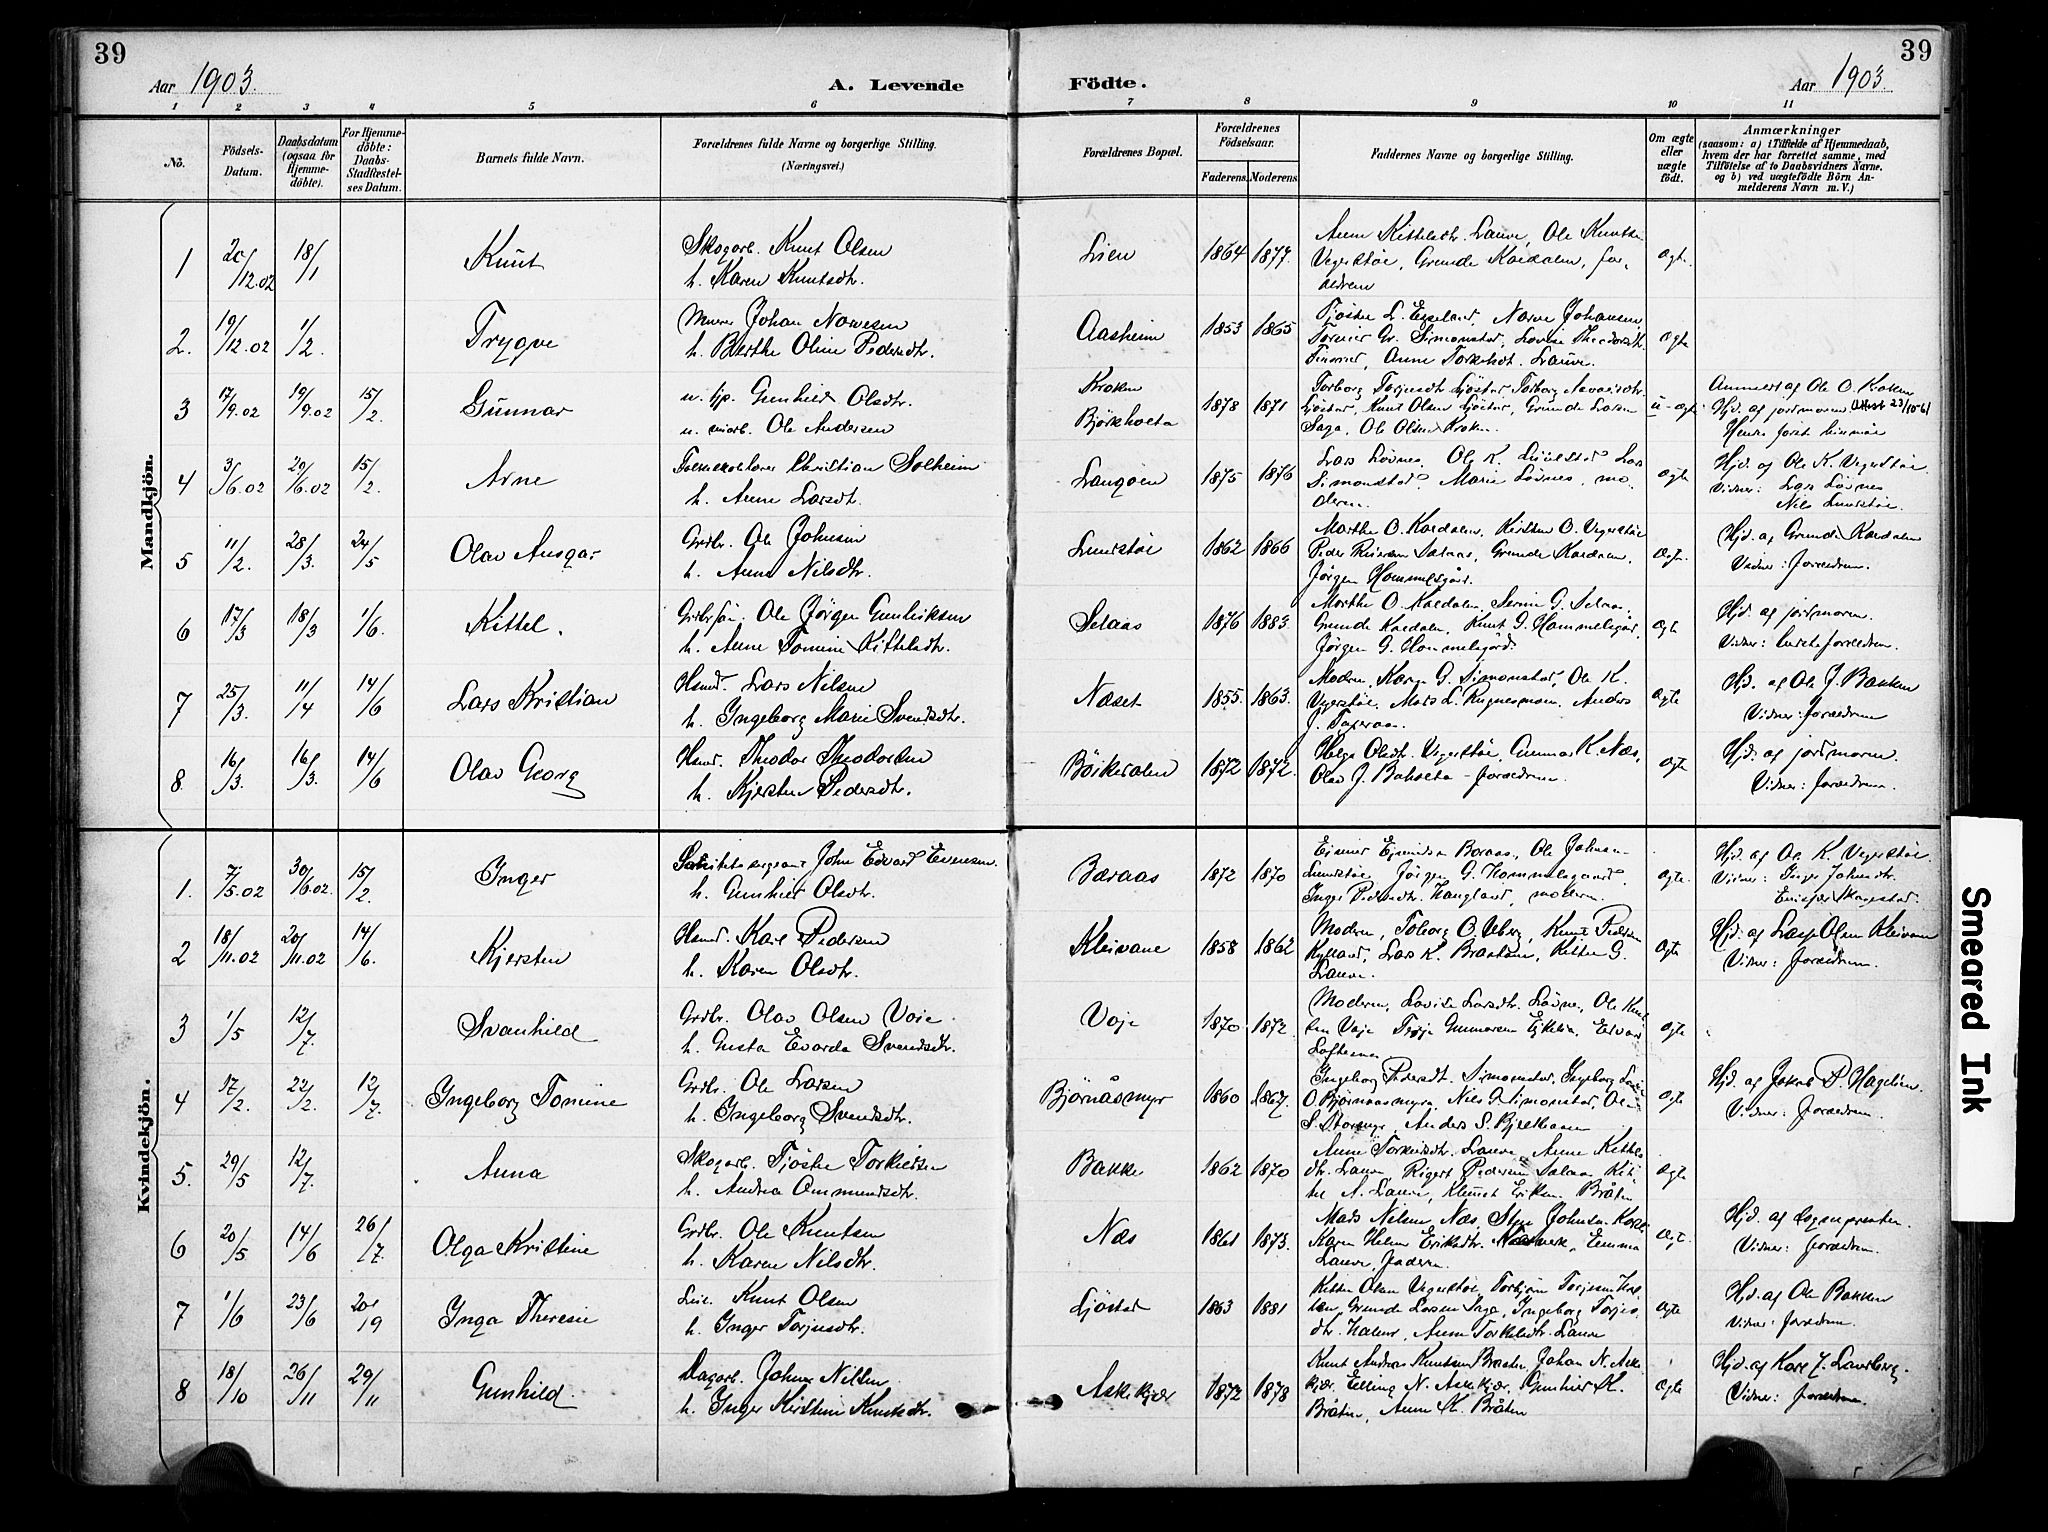 39
39
Aar 1903.
A. Levende Födte.
Aar 1903.
1 2 3 4 5 6 7 8 9 10 11
No.
Födsels-Datum.
Daabsdatum (ogsaa for Hjemmedöbte).
For Hjemmedöbte: Daabs-Stadfæstelses Datum.
Barnets fulde Navn.
Forældrenes fulde Navne og borgerlige Stilling.
(Næringsvei.)
Forældrenes Bopæl.
Forældrenes Födselsaar.
Faderens. Moderens.
Faddernes Navne og borgerlige Stilling.
Om ægte eller uægte födt.
Anmærkninger
(saasom: a) i Tilfælde af Hjemmedaab, hvem der har forrettet samme, med Tilföielse af to Daabsvidners Navne. og b) ved uægtefödte Börn Anmelderens Navn m. V.)
Mandkjön.
1 20/12.02 18/1 Knut Skogarb. Knut Olsen h. Karen Knutsdtr. Lien 1864 1877. Anne Kittelsdtr. Lauve, Ole Knuts Vegerstøe, Grunde Kaldalen, forældrene ægte.
2. 19/12.02 1/2. Trygve Murer Johan Narvesen h. Berthe Oline Pedersdtr. Aasheim 1853 1865 Tjøstel L. Espeland, Narve Johansen, Simonstad, Lovise Theodorsdtr. Anne Torkelsdt. Lauve. ægte
3 17/9.02 19/9.02 15/2. Gunnar u. tjp. Gunhild Olsdtr. u. Ole Andersen Kroken Bjørkholta 1878 1871 Torborg Torjusdtr Ljøstad, Ljøstad, Knut Olsen Ljøstad, Grunde Larsen Saga, Ole Olsen Kroken. u-ægte Anmeldt af Ole O. Kroken Hjd. af jordmoren Attest 23/10 61
4 3/6.02 29/6.02 15/2. Arne Folkeskolelærer Christian Solheim h. Anne Larsdt. Langøen 1875 1876 Lars Løvnes, Ole K. Lars Simonstad, Marie Løvnes, moderen. ægte Hjd. af Ole K. Vegerstøe. Vidner: Lars Løvnes Nils Lunestøe
5 11/2. 28/3. 24/5 Olav Ansgar Grdbr. Ole Johnsen h. Anne Nilsdtr. Lunestøe 1862 1866 Marthe O. Kaldalen, Kirsten O. Vegerstøe Peder Selaas, Grunde Kaldalen, Jørgen Hommelsgård. ægte. Hjd. af Grunde Kaldalen Vidner: forældrene.
6 17/3 18/3 1/6. Kittel. Grdbrsøn. Ole Jørgen Gunleiksen h. Anne Tomine Kittelsdtr. Selaas 1876 1883 Marthe O. Kaldalen, G. Selaas, Grunde Kaldalen, Knut G. Hommelsgård, Jørgen G. Hommelsgård. ægte Hjd. af jordmoren. Vidner: forældrene.
7 25/3. 11/4 14/6 Lars Kristian Hsmd. Lars Nilsen h. Ingeborg Marie Svendsdtr. Næset 1855. 1863. Moderen, Karen G. Simonstad, Ole K. Vegerstøe, Mads L. Rugnesmoen, Anders J. ægte Hjd. af Ole J. Bakken Vidner: forældrene
8. 16/3. 16/3. 14/6 Olav Georg Hsmd. Theodor Theodorsen h. Kjersten Pedersdtr. Børkedalen 1872 1872. Helga Olsdtr. Vegerstøe, Gunnar K. Næs, Olav J. forældrene. ægte Hjd. af jordmoren. Vidner: forældrene.
Kvindekjön.
1. 7/5.02 30/6.02. 15/2. Inger Sanitetssergeant John Edvard Evensen. h. Gunhild Olsdtr. Bæraas 1872 1870 Bæraas, Ole Johnsen Lunestøe, Jørgen G. Hommelsgaard, Inger Pedersdtr. Haugland, moderen. ægte. Hjd. af Ole K. Vegerstøe. Vidner: Inger Johnsdtr. Skagestad.
2 18/11.02 20/11.02 14/6. Kjersten Hsmd. Karl Pedersen h. Karen Olsdtr. Kleivane 1858 1862 Moderen, Toborg O. Ueberg, Knut Pedersen Kylland, Lars K. Brastøen, Kittel G. Lauve. ægte Hjd. af Olsen Kleivane Vidner: forældrene.
3 1/5 12/7. Svanhild Grdbr. Olav Olsen Voie h. Gusta Evarda Svendsdtr. Voje 1870 1872. Moderen, Lovise Larsdtr. Løvnes, Ole Knutsen Voje Gunnarsen Eiklia, Edvard Loftesnes ægte
4 17/2. 22/2. 12/7. Ingeborg Tomine Grdbr. Ole Larsen h. Ingeborg Svendsdtr. Bjørnåsmyr 1860 1867. Ingeborg Pedersdt. Simonstad, Ingeborg O Bjørnaasmyra, Nils G. Simonstad, Ole S. Stormyr, Anders S. ægte Hjd. af Jakob P. Hagelien. Vidner: forældrene.
5. 29/5 12/7. Anna Skogarb. Tjøstel Torkildsen h. Andrea Ommundsdtr. Bakke 1862 1870 Anne Torkildsdtr. Lauve, Anne Kittelsdtr. Lauve, Rigert Pedersen Selaas, Kittel A. Lauve, Klemet Eriksen Bråten ægte
6 20/5 14/6 26/7. Olga Kristine Grdbr. Ole Knutsen h. Karen Nilsdtr. Næs 1861 1873. Mads Nilsen Næs, Johnsen Karen Helene Eriksdtr. Næsverk, Emma Lauve, faderen. ægt. Hjd. af sognepresten. Vidner: forældrene.
7 1/6 23/6 20/19 Inga Theresie Knut Olsen h. Inger Torjusdtr. Ljøstad 1863 1881 Kittel Olsen Vegerstøe, Torbjørn Torjusen Grunde Larsen Saga, Ingeborg Torjusdtr. Anne Torkelsdtr. Lauve ægte Hjd. af Ole Bakken Vidner: forældrene.
8 18/10 26/11 29/11 Gunhild Dagarb. Johan Nilsen h. Inger Kirstine Knutsdtr. Askekjær 1872 1878 Knut Andreas Knutsen Bråten, Johan N. Askekjær, Elling N. Askekjær, Gunhild K. Bråten, Anne K. Bråten ægte Hjd. af Kare J. Vidner: forældrene.
Smeared Ink